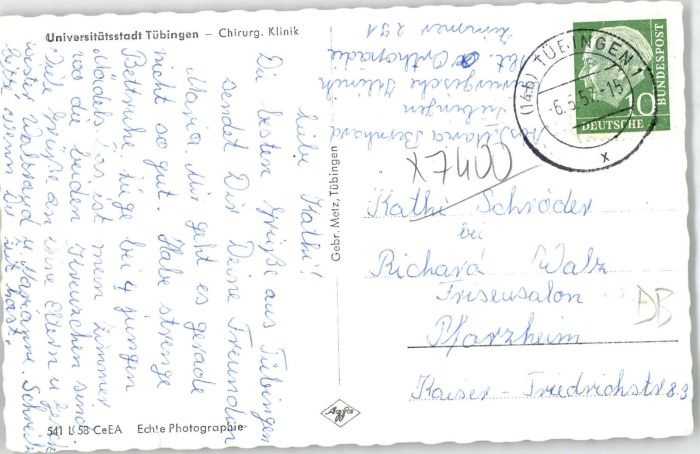 Universitätsstadt Tübingen – Chirurg. Klinik
Liebe Kathi!
Die besten Grüße aus Tübingen
sendet Dir Deine Freundin
Maria. Mir geht es gerade
nicht so gut. Habe strenge
Bettruhe. Liege bei 4 jungen
Mädels. Das ist mein Zimmer
wo die beiden Kreuzchen sind.
Viele Grüße an Deine Eltern u.
Waltraud u. Mariane. Schreib
bitte wenn Du Zeit hast.
541 L 58 CeEA Echte Photographie
Gebr. Metz, Tübingen
Agfa
Maria Bernhard
Tübingen
Chirurgische Klinik
Abt. Orthopädie
Zimmer 291
(14b) TÜBINGEN 1
-6.5.57.-15
x
10
DEUTSCHE
BUNDESPOST
x7400
Kathi Schröder
bei
Richard Walz
Friseusalon
Pforzheim
Kaiser-Friedrichstr 83
DB